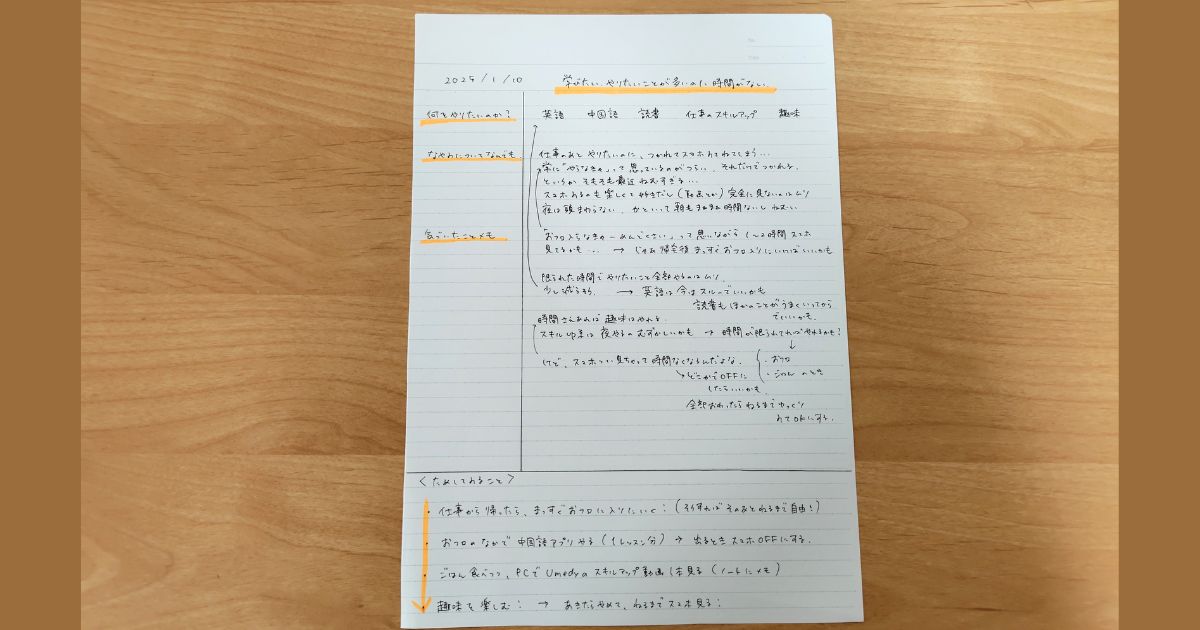 2025/1/10 学びたい、やりたいことが多いのに時間がない。
何をやりたいのか？ 英語 中国語 読書 仕事のスキルアップ 趣味
なやみについてなんでも 仕事のあとやりたいのに、つかれてスマホみてねてしまう…
常に「やらなきゃ」って思っているのがつらい。それだけでつかれる。
というかそもそも最近ねむすぎる…
スマホみるのも楽しくて好きだし(動画とか)完全に見ないのはムリ
夜は頭まわらない。かといって朝もまあまあ時間ないしねむい
気づいたことメモ 「おフロ入らなきゃーめんどくさい」って思いながら1〜2時間スマホ
見てるかも… → じゃあ帰宅後まっすぐおフロ入りにいけばいいかも
限られた時間でやりたいこと全部やるのはムリ
少し減らそう。 → 英語は今はスルーでいいかも
読書もほかのことがうまくいってから
でいいかも。
時間さえあれば趣味はやれる。
スキルup系は夜やるのむずかしいかも → 時間が限られてればやれるかも?
↓
けど、スマホつい見ちゃって時間なくなるんだよな。 ・おフロ
→どこかでOFFに ・ごはん のとき
したらいいかも
全部おわったらねるまでゆっくり
みてOKにする。
<ためしてみること>
・仕事から帰ったら、まっすぐおフロに入りにいく! (そうすればそのあとねるまで自由!)
・おフロのなかで中国語アプリやる(1レッスン分) → 出るときスマホOFFにする。
・ごはん食べつつ、PCでUmedyのスキルアップ動画1本見る(ノートにメモ)
・趣味を楽しむ! → あきたらやめて、ねるまでスマホ見る!